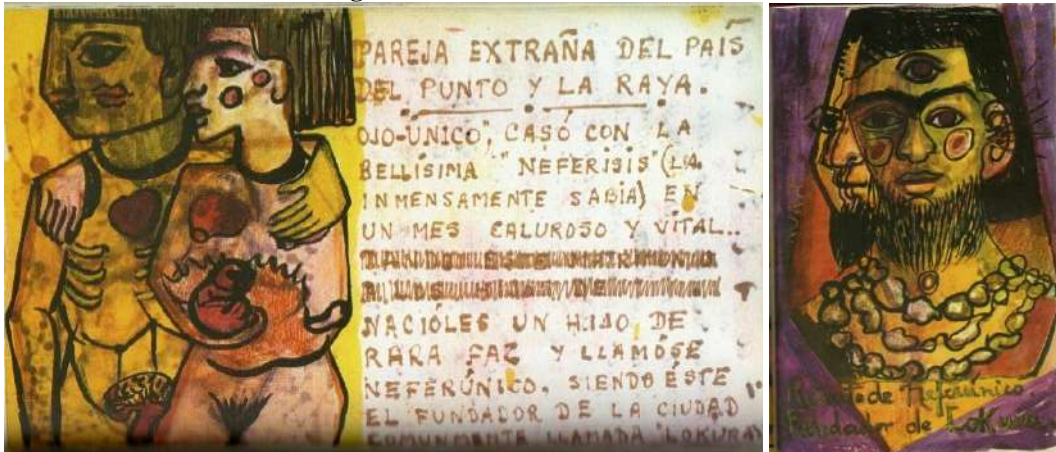 PAREJA EXTRAÑA DEL PAÍS
DEL PUNTO Y LA RAYA.
OJO-UNICO", CASÓ CON LA
BELLÍSIMA "NEFERISIS" (LA
INMENSAMENTE SABIA) EN
UN MES CALUROSO Y VITAL...
NACIÓLES UN HIJO DE
RARA FAZ Y LLAMÓSE
NEFERÚNICO. SIENDO ÉSTE
EL FUNDADOR DE LA CIUDAD
COMUNMENTE LLAMADA "LOKURA"
de Neferúnico.
Fundador de Lokura